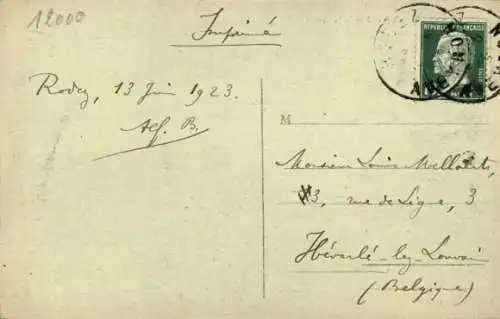 12000
Imprimé
RÉPUBLIQUE FRANÇAISE
Rodez, 13 Juin 1923.
Alf. B.
M
Monsieur Louis
3, rue de Ligne, 3
Héverlé-lez-Louvain
(Belgique)